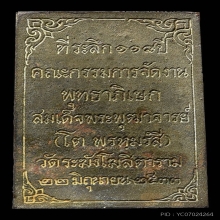 ที่ระลึก๑๑๘ปี
คณะกรรมการจัดงาน
พุทธาภิเษก
สมเด็จพระพุฒาจารย์
(โต พรหมรังสี)
วัดระฆังโฆสิตาราม
๒๒ มิถุนายน ๒๕๓๓
PID : YC07024264